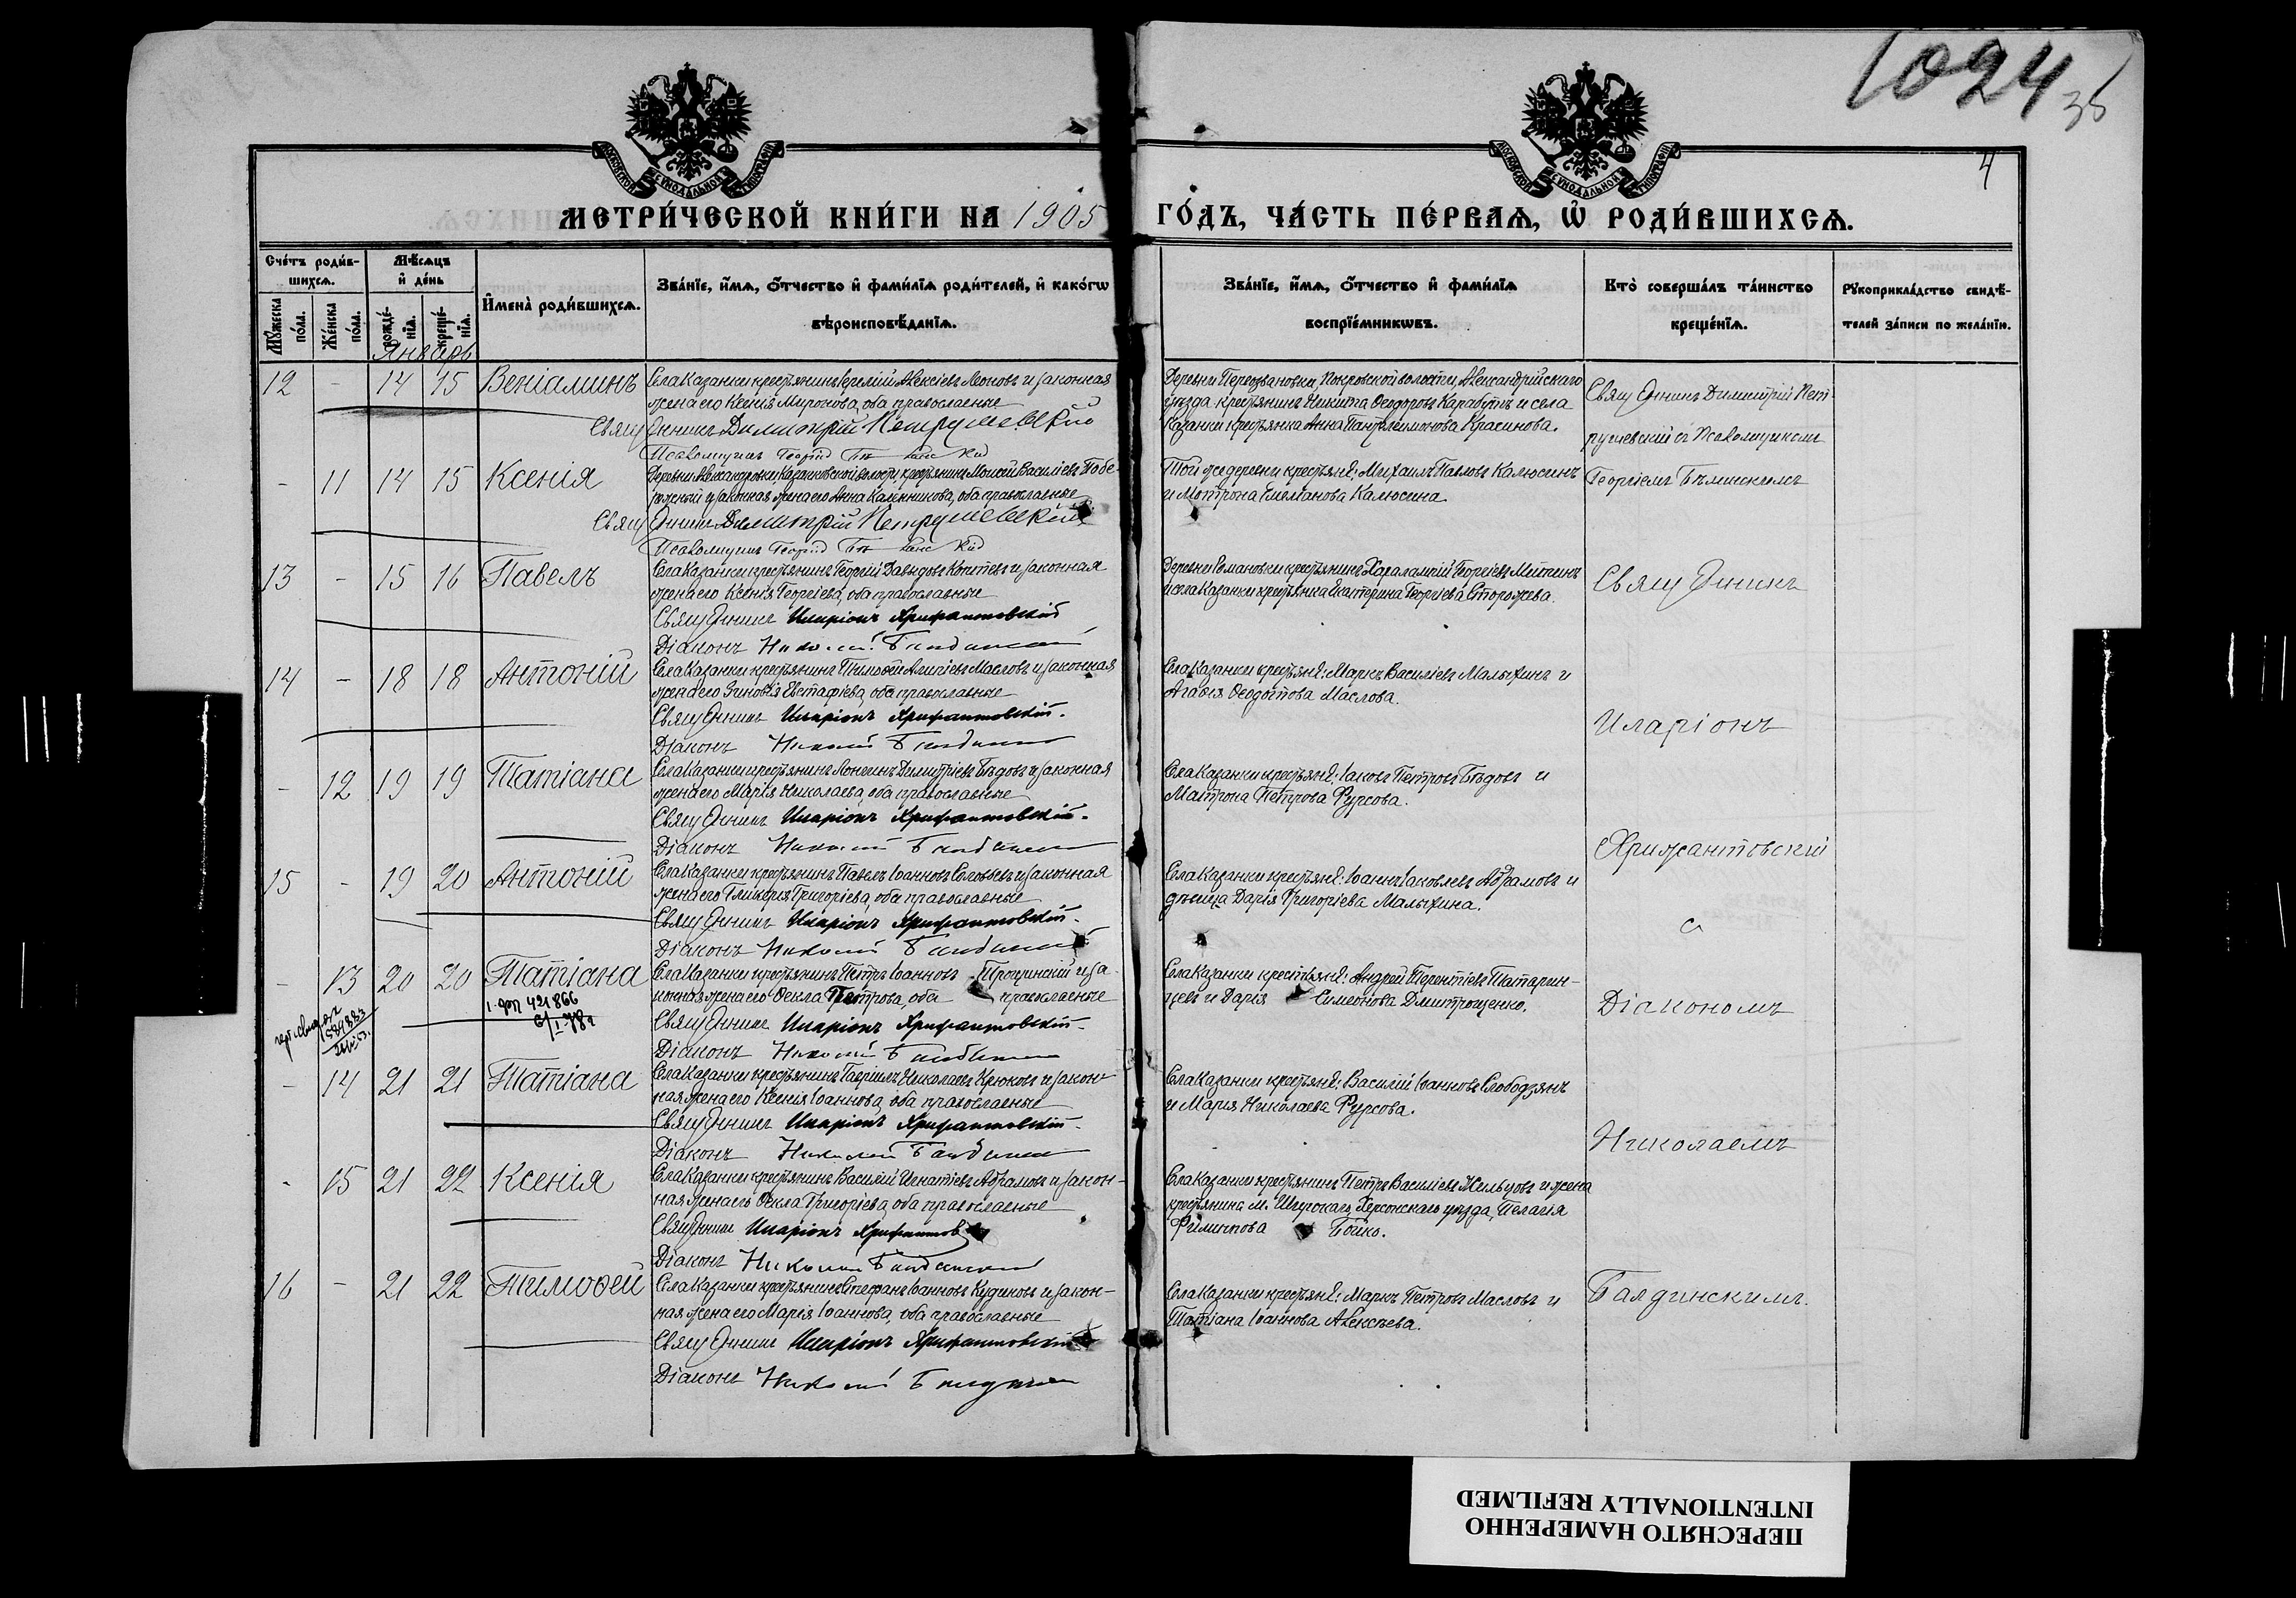 1024
35
4
МОСКОВСКОЙ СѴНОДАЛЬНОЙ ТИПОГРАФІИ
МОСКОВСКОЙ СѴНОДАЛЬНОЙ ТИПОГРАФІИ
МЕТРИ́ЧЕСКОЙ КНИ́ГИ НА 1905 ГО́ДЪ, ЧА́СТЬ ПЕ́РВАЯ, Ѡ҆ РОДИ́ВШИХСЯ.
Сче́тъ роди́в-
шихся.
Мꙋ́жеска по́ла.
Же́нска по́ла.
Мѣ́сяцъ
и҆ де́нь
рожде́-
нїя.
креще́-
нїя.
И҆мена̀ роди́вшихся.
Зва́нїе, и҆́мя, ѻ҆́тчество и҆ фами́лїя роди́телей, и҆ како́гѡ
вѣроисповѣ́данїя.
Зва́нїе, и҆́мя, ѻ҆́тчество и҆ фами́лїя
воспрїе́мникѡвъ.
Кто̀ соверша́лъ та́инство
креще́нїя.
Рꙋкоприкла́дство свидѣ́-
телей за́писи по жела́нїю.
Январь
12 - 14 15 Веніаминъ
Села Казанки крестьянинъ Іеремій Алексіевъ Леоновъ и законная
жена его Ксенія Миронова, оба православные
Священникъ Димитрій Петрушевскій
Псаломщикъ Георгій
Деревни Первозвановки, Покровской волости, Александрійскаго
уѣзда крестьянинъ Никита Ѳеодоровъ Карабутъ и села
Казанки крестьянка Анна Пантелеимонова Красинова.
Священникъ Димитрій Пет-
рушевскій съ Псаломщикомъ
- 11 14 15 Ксенія
Деревни Александровки, Казанковской волости, крестьянинъ Моисей Василіевъ Побе-
режный и законная жена его Анна Калинникова, оба православные
Священникъ Димитрій Петрушевскій
Псаломщикъ Георгій
Той же деревни крестьяне: Михаилъ Павловъ Калюсинъ
и Мотрона Емеліанова Калюсина.
Георгіемъ Бѣлинскимъ
13 - 15 16 Павелъ
Села Казанки крестьянинъ Георгій Давидовъ Копитевъ и законная
жена его Ксенія Георгіева, оба православные
Священникъ Иларіонъ Хрижантовскій
Діаконъ Николай Балдинскій
Деревни Романовки крестьянинъ Харалампій Георгіевъ Мейтенъ
и села Казанки крестьянка Екатерина Георгіева Сторожева.
Священникъ
14 - 18 18 Антоній
Села Казанки крестьянинъ Тимоѳей Маслов и законная
жена его Зиновія Евстафіева, оба православные
Священникъ Иларіонъ Хрижантовскій.
Діаконъ Николай Балдинскій
Села Казанки крестьяне: Маркъ Василіевъ Малыхинъ и
Агафія Ѳеодотова Маслова.
Иларіонъ
- 12 19 19 Татіана
Села Казанки крестьянинъ Лонгинъ Димитріевъ Бѣдовъ и законная
жена его Марія Николаева, оба православные
Священникъ Иларіонъ Хрижантовскій.
Діаконъ Николай Балдинскій
Села Казанки крестьяне: Іаковъ Петровъ Бѣдовъ и
Матрона Петрова Фурсова.
Хрижантовскій
15 - 19 20 Антоній
Села Казанки крестьянинъ Павелъ Іоанновъ Соловьевъ и законная
жена его Гликерія Григоріева, оба православные
Священникъ Иларіонъ Хрижантовскій.
Діаконъ Николай Балдинскій
Села Казанки крестьяне: Іоаннъ Іаковлевъ Абрамовъ и
дѣвица Дарія Григоріева Малыхина.
съ
- 13 20 20 Татіана
1-ФП 421866
6/I-78г
584883
Села Казанки крестьянинъ Петръ Іоанновъ Троцинскій и за-
конная жена его Ѳекла Петрова, оба православные
Священникъ Иларіонъ Хрижантовскій.
Діаконъ Николай Балдинскій
Села Казанки крестьяне: Андрей Терентіевъ Татарин-
цевъ и Дарія Симеонова Дмитрощенко.
Діакономъ
- 14 21 21 Татіана
Села Казанки крестьянинъ Гавріилъ Николаевъ Крюковъ и закон-
ная жена его Ксенія Іоаннова, оба православные
Священникъ Иларіонъ Хрижантовскій.
Діаконъ Николай Балдинскій
Села Казанки крестьяне: Василій Іоанновъ Слободзянъ
и Марія Николаева Фурсова.
Николаемъ
- 15 21 22 Ксенія
Села Казанки крестьянинъ Василій Игнатіевъ Абрамовъ и закон-
ная жена его Ѳекла Григоріева, оба православные
Священникъ Иларіонъ Хрижантов
Діаконъ Николай Балдинскій
Села Казанки крестьянинъ Петръ Василіевъ Жильцовъ и жена
крестьянина м. Широкаго, Херсонскаго уѣзда, Пелагія
Филиппова Бойко.
16 - 21 22 Тимоѳей
Села Казанки крестьянинъ Стефанъ Іоанновъ Кудиновъ и закон-
ная жена его Марія Іоаннова, оба православные
Священникъ Иларіонъ Хрижантовскій
Діаконъ Николай Балдинскій
Села Казанки крестьяне: Маркъ Петровъ Масловъ и
Татіана Іоаннова Алексѣева.
Балдинскимъ.
ПЕРЕСНЯТО НАМЕРЕННО
INTENTIONALLY REFILMED